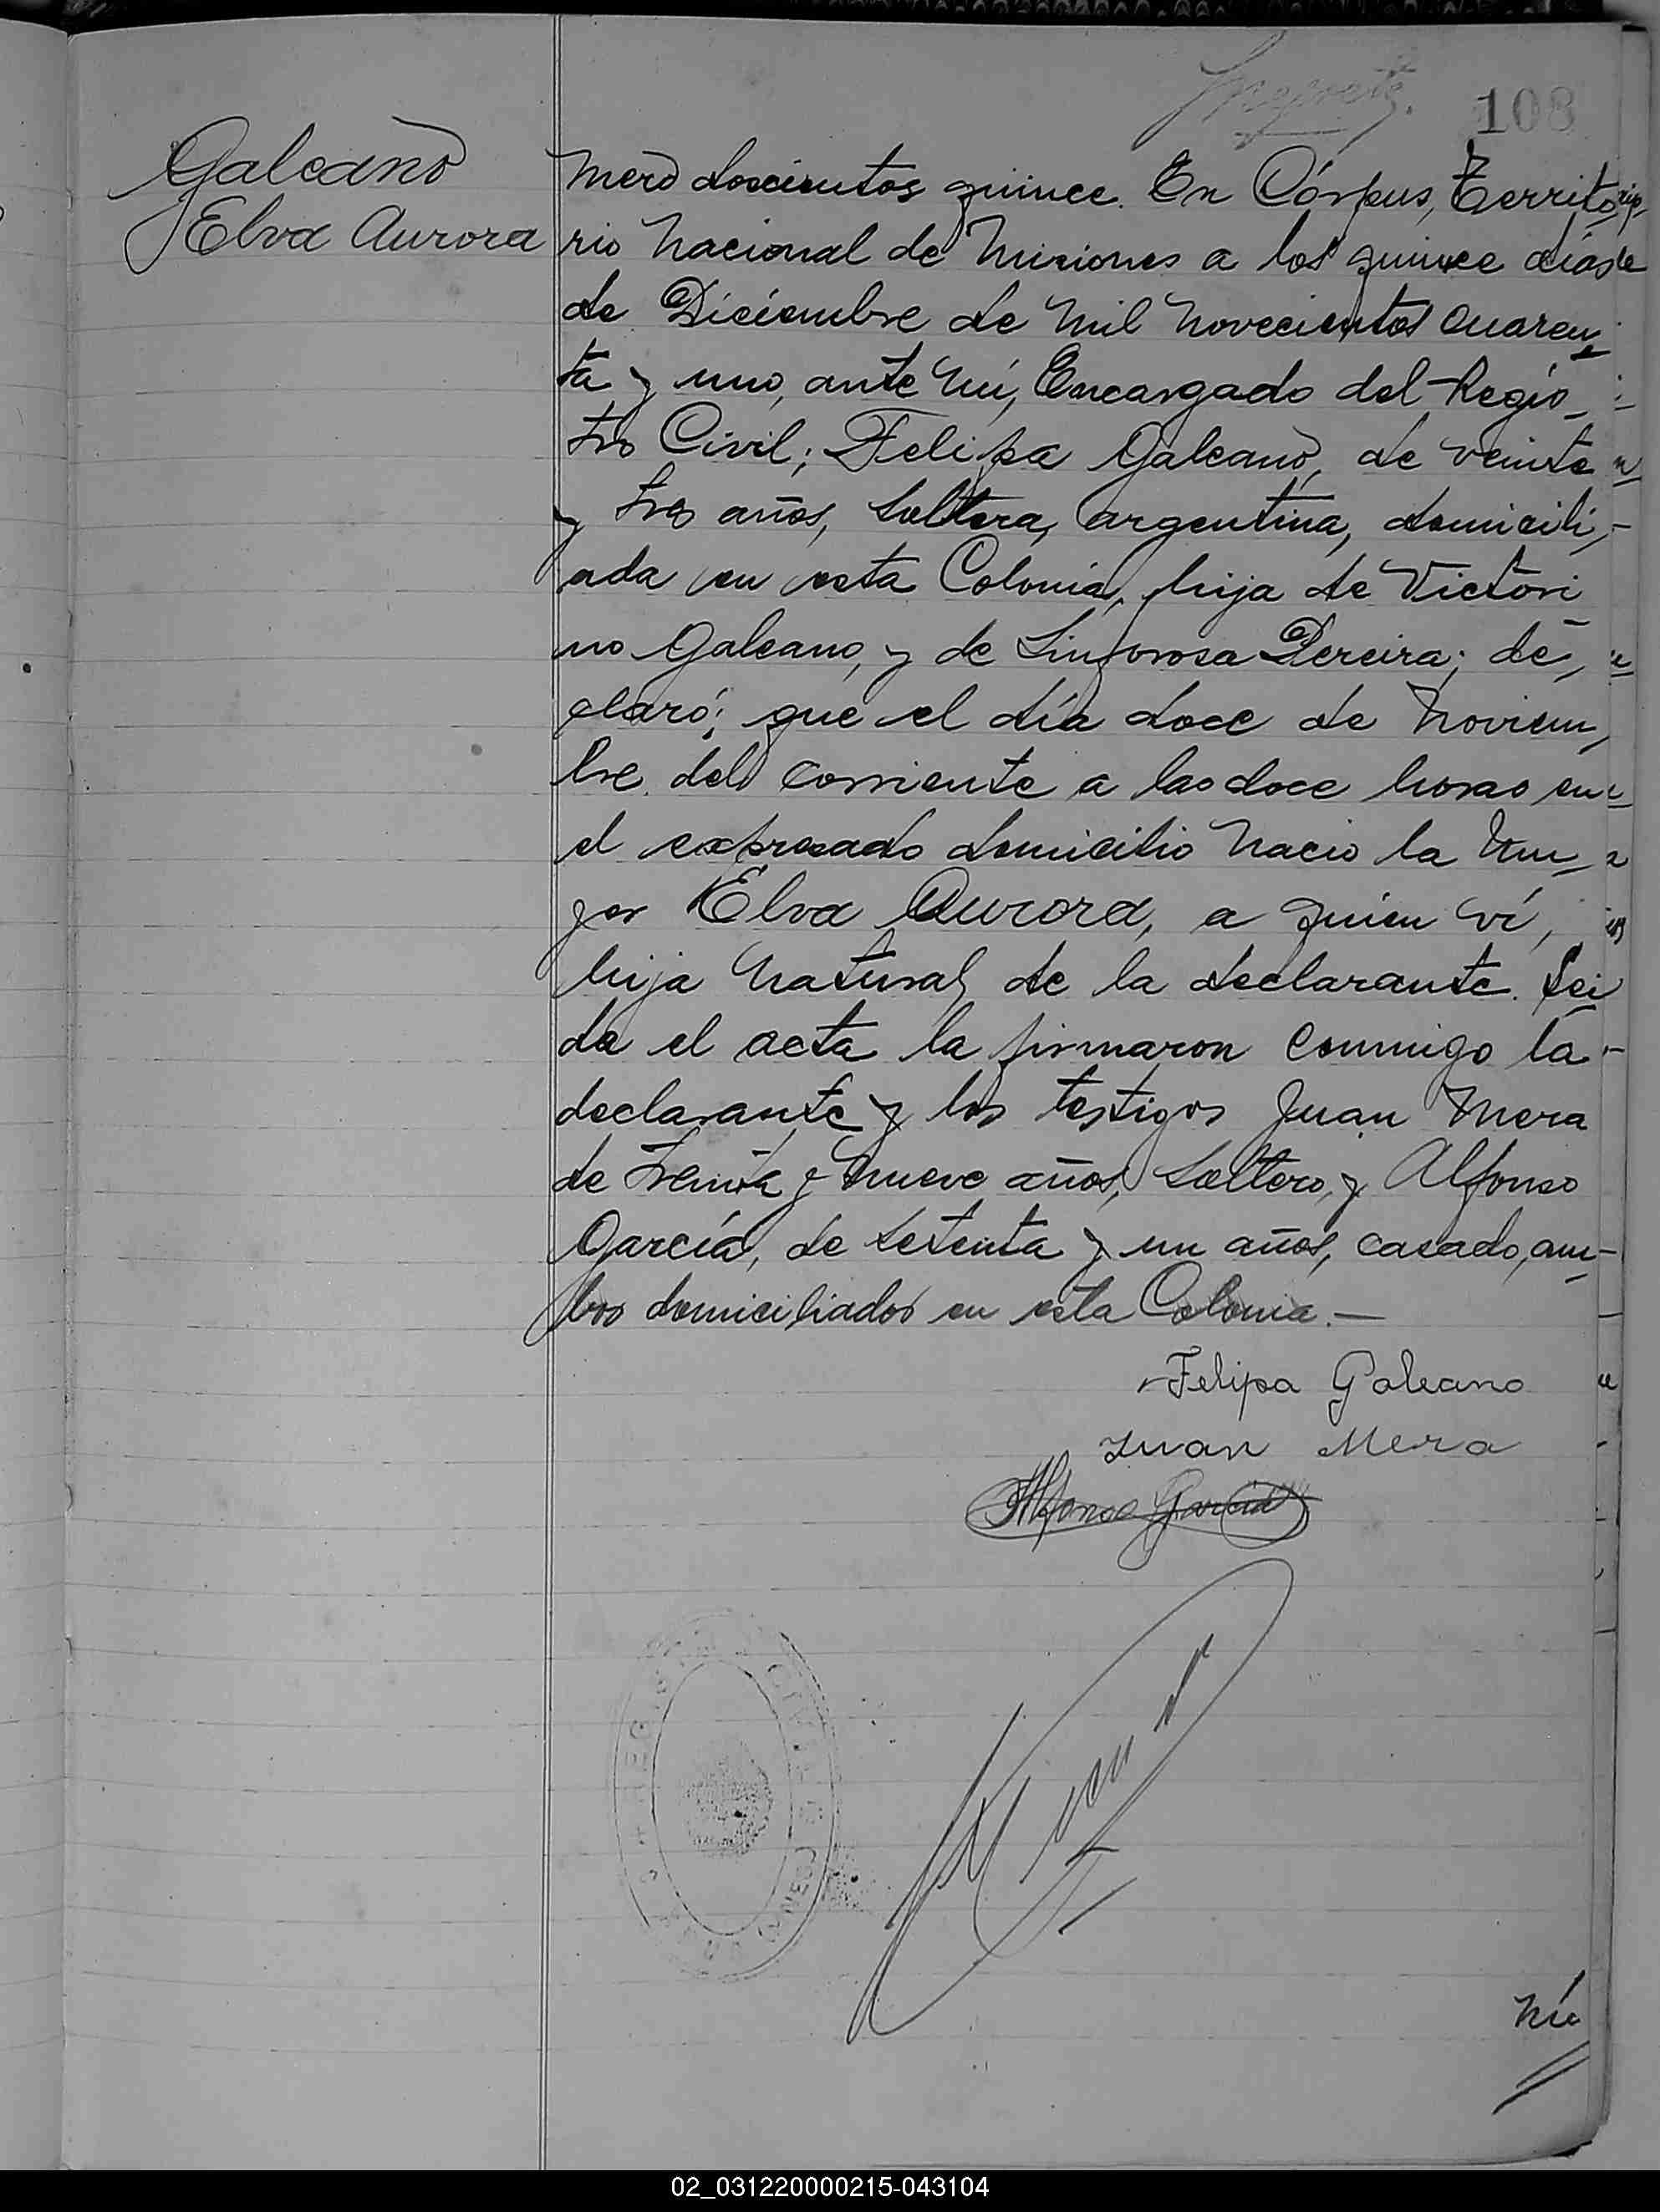 108
Galeano
Elva Aurora
mero doscientos quince. En Córpus, Territo
rio Nacional de Misiones a los quince días
de Diciembre de mil novecientos cuaren
ta y uno, ante mí, Encargado del Regis
tro Civil; Felipa Galeano, de veinte
y tres años, soltera, argentina, domicili
ada en esta Colonia, hija de Victori
no Galeano, y de Sinforosa Pereira; de
claró: que el día doce de Noviem
bre del corriente a las doce horas en
el expresado domicilio nació la mu
jer Elva Aurora, a quien ví,
hija natural de la declarante. Lei
da el acta la firmaron conmigo la
declarante y los testigos Juan Mera
de treinta y nueve años, soltero, y Alfonso
García, de setenta y un años, casado, am
bos domiciliados en esta Colonia.—
Felipa Galeano
Juan Mera
Alfonso García
REGISTRO CIVIL
Nú
02_031220000215-043104